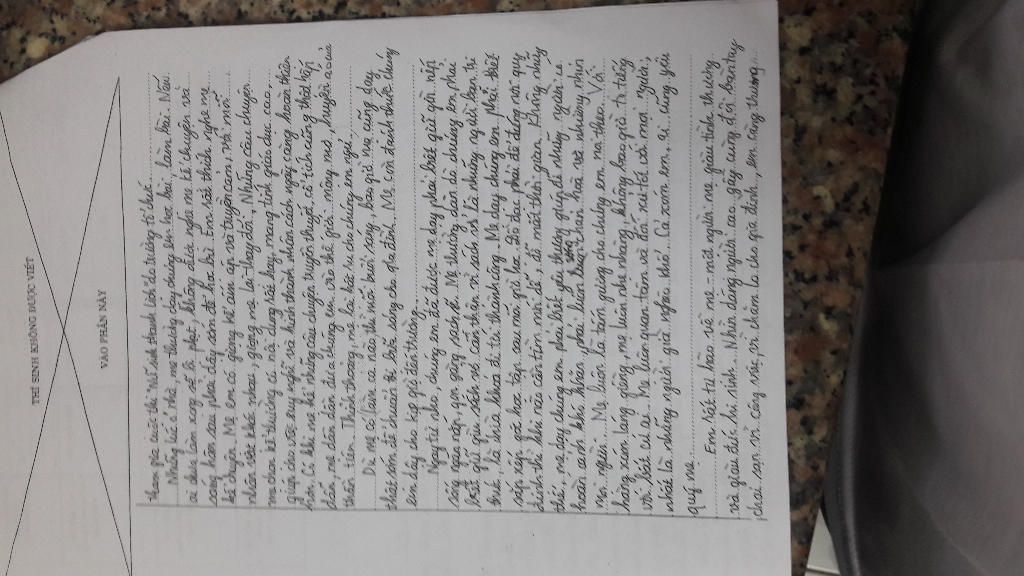 THÍ SINH KHÔNG ĐƯỢC VIẾT
VÀO PHẦN NÀY
tham gia cuộc thi nét sinh thanh lịch do trường tổ chức.
Những lúc ở nhà, mẹ thường dạy chúng em học bài, làm bài. Nếu
ai chưa làm xong sẽ bị phạt, không được nghe mẹ kể chuyện và
sáng hôm sau phải dậy sớm để học bài. Em rất thích nghe mẹ
kể chuyện. Mẹ em có giọng kể ấm áp và truyền cảm, với mỗi
nhân vật khác nhau, giọng mẹ lại thay đổi. Những câu chuyện
mẹ chọn kể thường có nội dung rất hay, mang tính giáo dục cao,
giúp cho tôi suy nghĩ và hình thành nhân cách ngày càng hoàn thiện
hơn. Có khi mẹ kể những câu chuyện truyền thuyết, cổ tích cũng thật hấp
dẫn, mẹ dần dần đưa chúng em vào thế giới mộng mơ, huyền ảo của
thần tiên. Thỉnh thoảng, mẹ lại hát ru cho chúng em ngủ.
Dù mẹ có bận cả ngày thì mỗi buổi sáng, bao giờ mẹ cũng dậy
thật sớm để chuẩn bị bữa sáng cho gia đình. Mẹ còn đánh thức chúng
em dậy cho kịp giờ tới trường.
Ngay từ nhỏ, chúng em đã được mẹ dạy phải biết giữ gìn nếp
sống ngăn nắp, gọn gàng, sạch sẽ. Mẹ thường dặn dò chúng em phải
biết giữ gìn sách vở cẩn thận vì sách vở là những người bạn tri
thức, là chìa khoá đi tới thành công. Mẹ dạy chúng em phải biết
sắp xếp góc học tập sau mỗi giờ học. Đồ đạc phải để đúng nơi quy
định thì khi nào cần tìm mới dễ, đỡ mất thời gian. Không những
thế, mẹ dạy chúng em phải biết yêu thương giúp đỡ những người có
hoàn cảnh khó khăn, phải luôn sống thân hoà với những nhìn
mọi người. Mẹ luôn là tấm gương cho chúng em noi theo. Với
hàng xóm láng giềng, mẹ luôn nhẹ nhàng, không bao giờ to tiếng
với bất cứ ai. Mẹ luôn quan tâm và đối xử tốt với mọi người,
nhất là những người già, nghèo khổ. Cả xóm em, ai cũng yêu
quý mẹ.
Em rất tự hào về mẹ - một người mẹ giàu tình thương
và giàu đức hi sinh. Nhìn dáng người cao, gầy cùng đôi bàn tay
chai sạn vì công việc, vì thêm lo cho gia đình, em càng thương